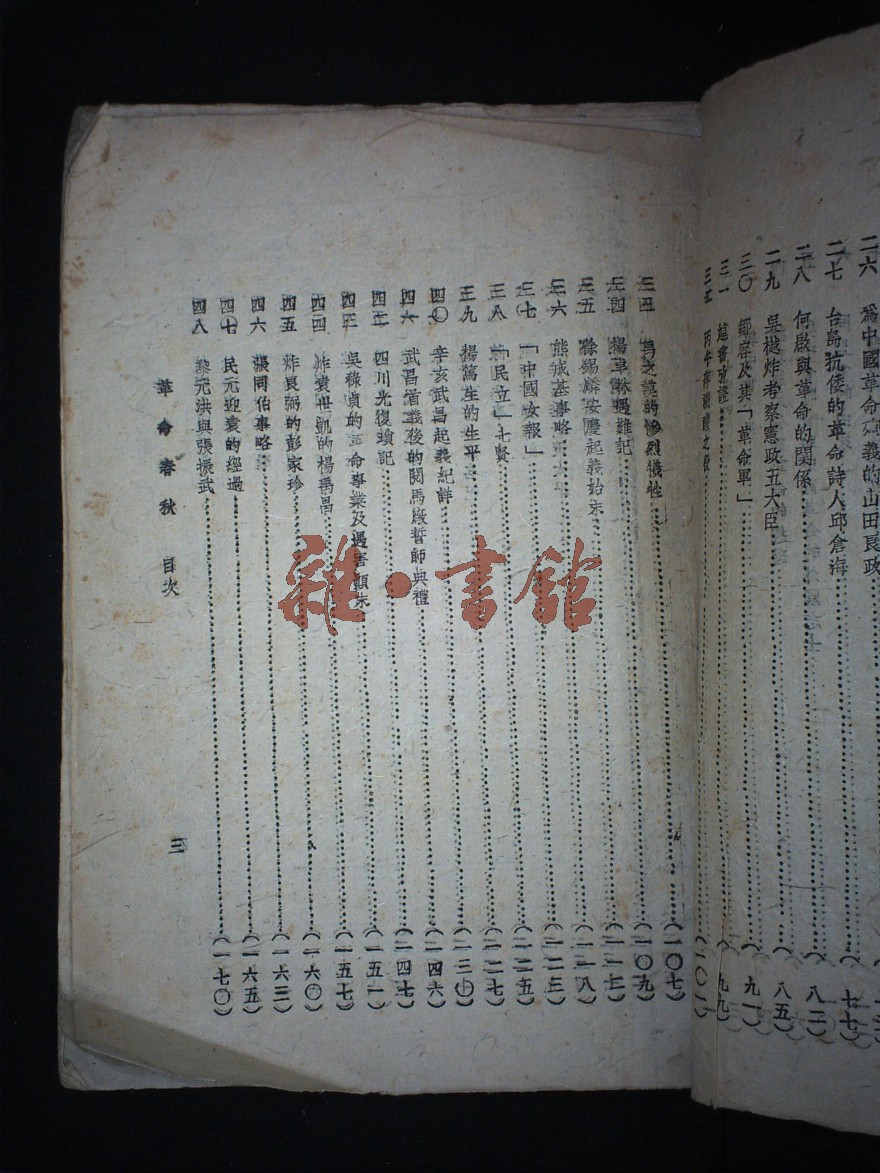 二六 為中國革命殉義的山田良政
二七 台島抗倭的革命詩人邱倉海 (七七)
二八 何啟與革命的関係 (八二)
二九 吳樾炸考察憲政五大臣 (八五)
三〇 鄒容及其「革命軍」 (九一)
三一 (九九)
丙午萍 之役 (一〇一)
禹之謨的慘烈犧牲 (一〇七)
三四 楊卓林遇難記 (一〇九)
三五 徐錫麟安慶起義始末 (一一七)
三六 熊成基事略 (一一八)
三七 「中國女報」 (一二三)
三八 「民立」七賢 (一二五)
三九 楊篤生的生平 (一二七)
四〇 辛亥武昌起義紀詳
武昌首義後的閱馬廠誓師典禮 (一四六)
四二 四川光復瑣記 (一四七)
四三 吳祿貞的革命事業及遇害顛末 (一五一)
四四 炸袁世凱的楊禹昌 (一五七)
四五 炸良弼的彭家珍 (一六〇)
四六 張同伯事略 (一六三)
四七 民元迎袁的經過 (一六五)
四八 黎元洪與張振武 (一七〇)
革命春秋 目次
三
雜·書館